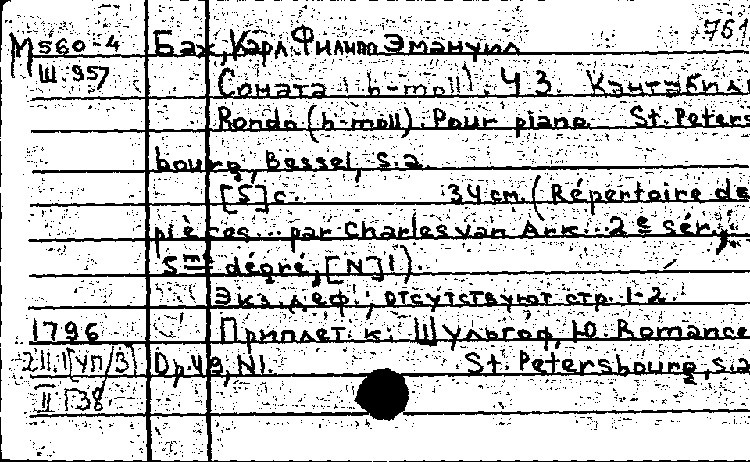 761
М 560-4 Бах, Карл Филипп Эмануил
Ш.957 Соната (h-moll). Ч 3. Кантабиле
Rondo (h-moll). Pour piano St. Peters
bourg, Bessel, s.a.
[5] с. 34 cm. (Répertoire de
pièces... par Charles van Ark... 2e sér.,
5me dégré, [N] 1).
Экз. деф.; отсутствуют стр. 1-2.
1796 Приплет. к: Шульгоф, Ю. Romance
Op. 49, N1. St. Petersbourg, s.a
II Г38